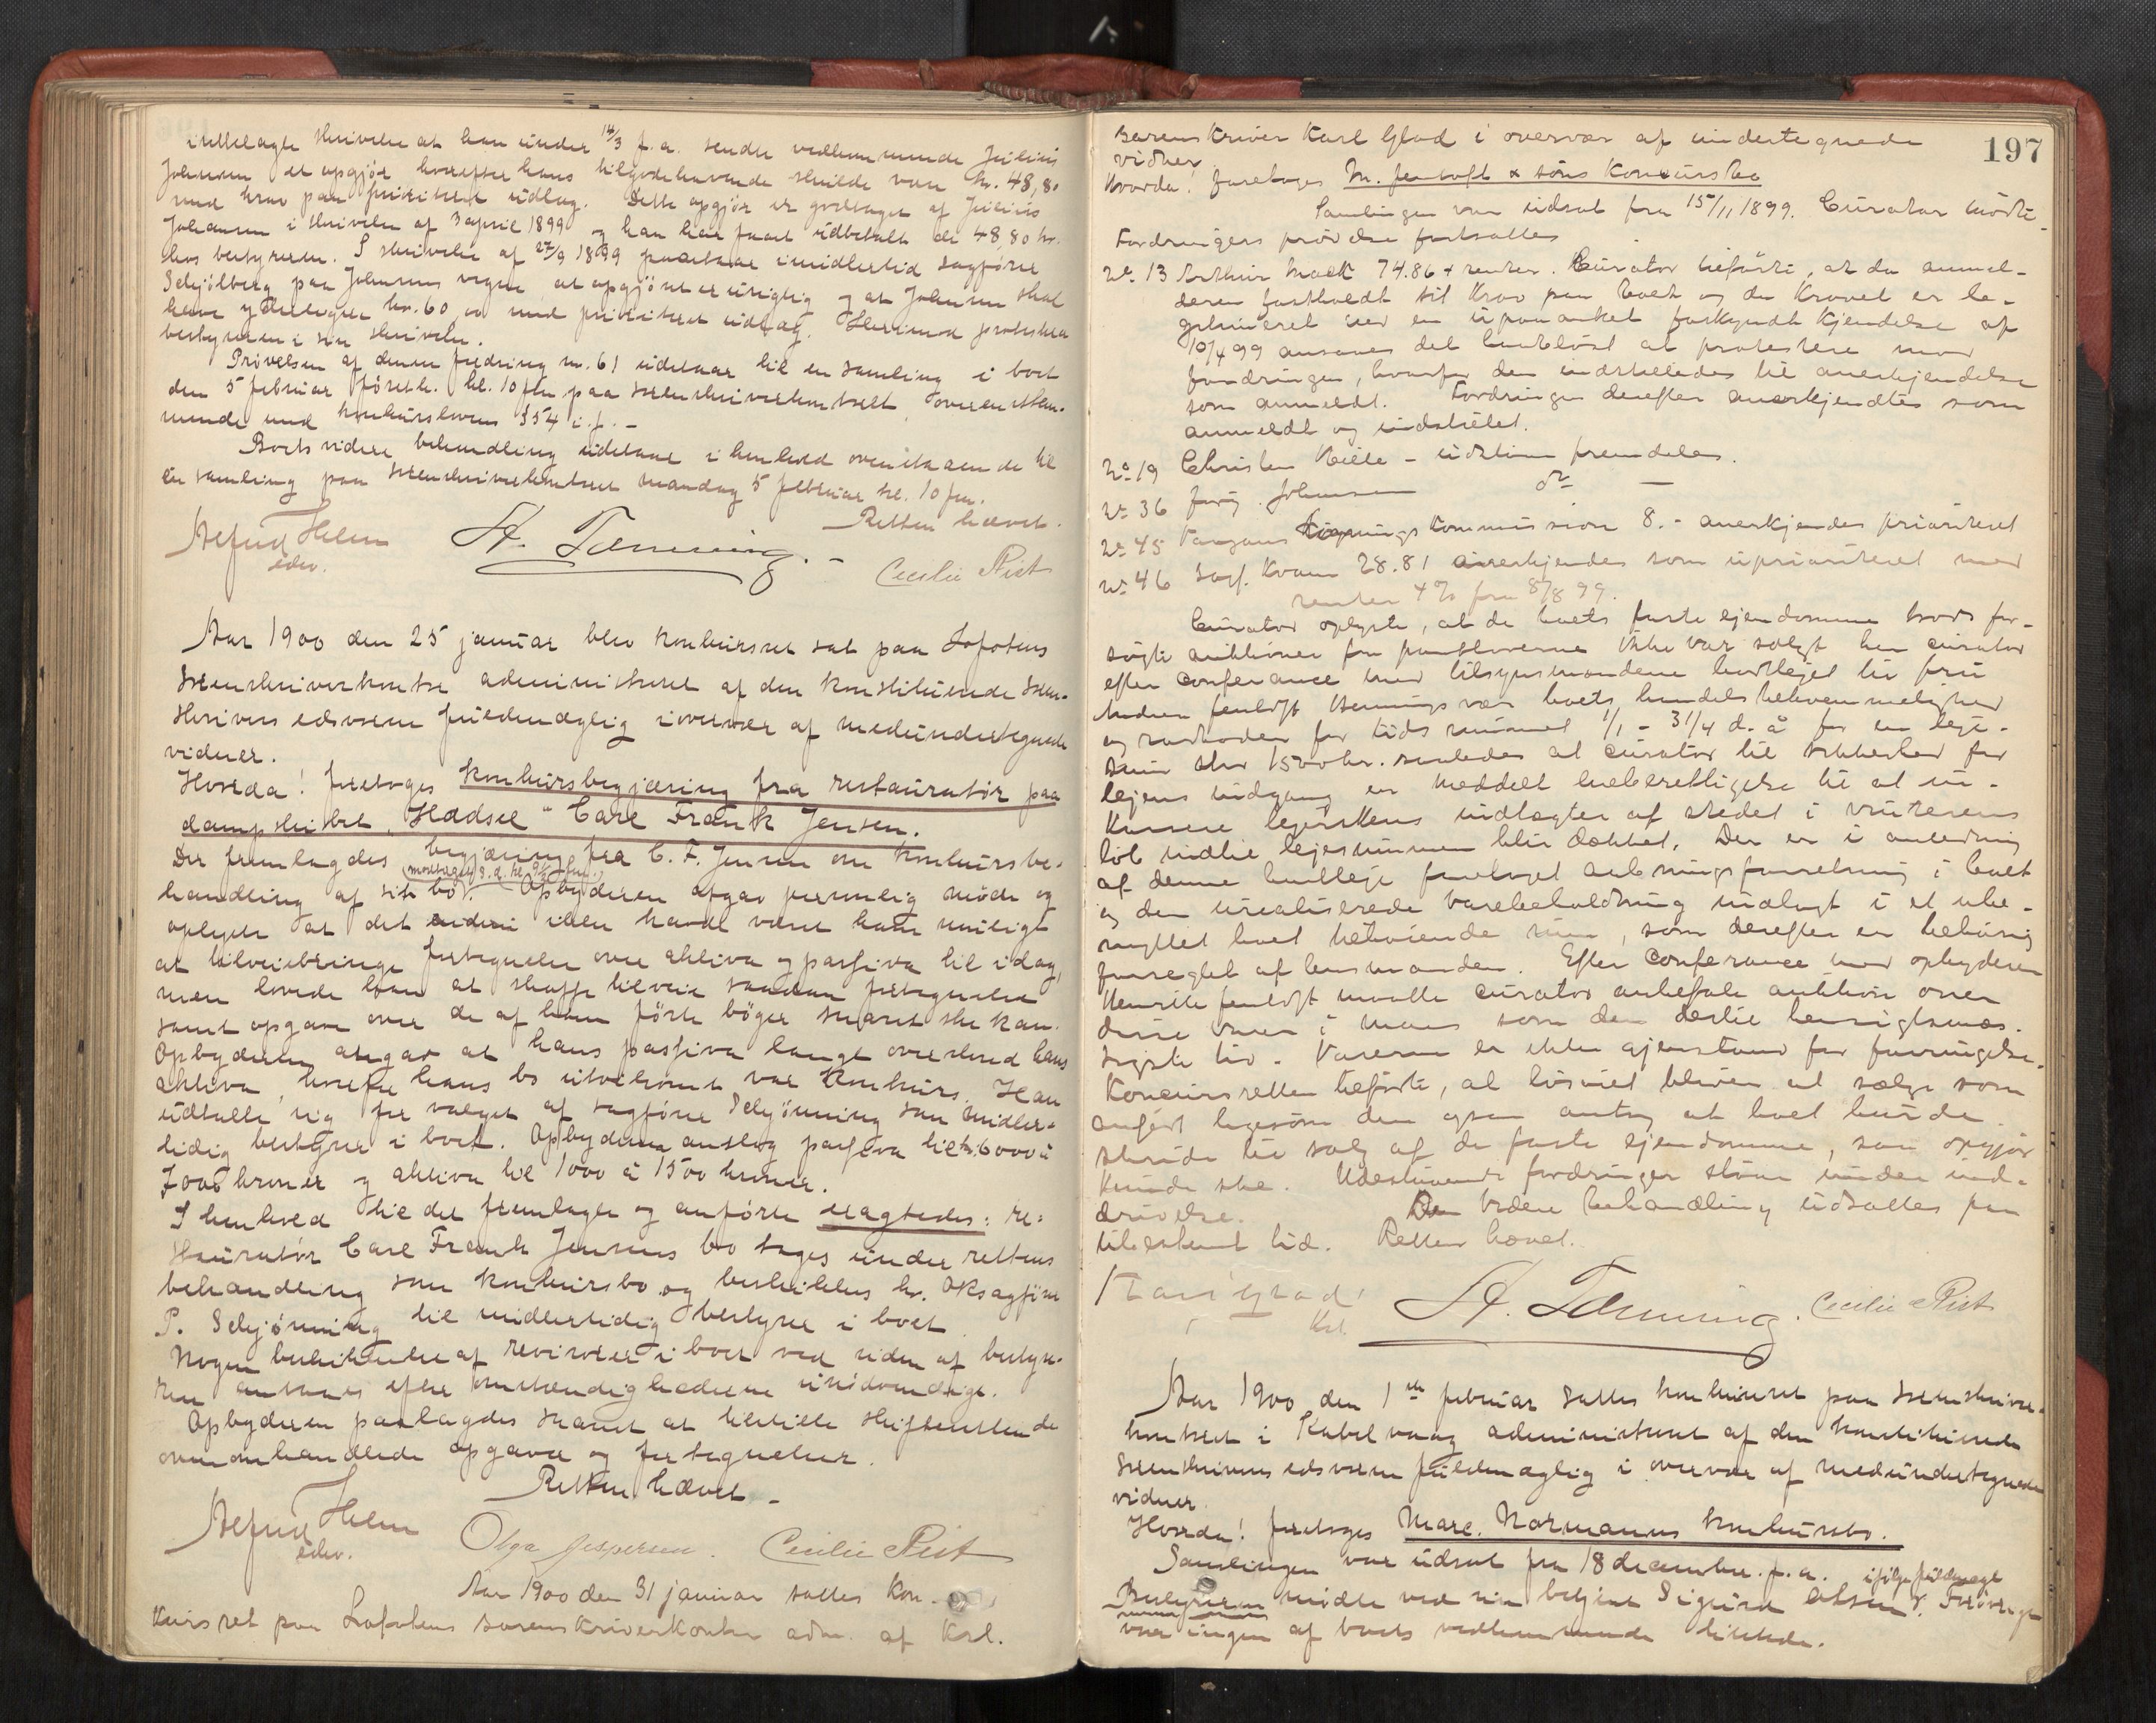 indlagte skrivelse at han under 14/3 f.a. sendte vedkommende Julius
Johansen et opgjør hvorefter hans tilgodehavende skulde være kr. 48,80
med krav paa prioritert udlæg. Dette opgjør er godtaget af Julius
Johansen i skrivelse af 3 april 1899 og han har faaet udbetalt de 48,80 kr.
hos bestyreren. I skrivelse af 27/9 1899 paastaar imidlertid sagfører
Schjølberg paa Johansens vegne at opgjøret er urigtig og at Johansen skal
have yderligere kr. 60,00 med prioritert udlæg. Herimod protesterer
bestyreren i sin skrivelse.
Prøvelsen af denne fordring no. 61 udstaar til en samling i boet
den 5 februar førstk. kl. 10 fm paa sorenskriverkontoret, overensstem-
mende med konkurslovens § 54 i.f. -
Boets videre behandling udstaar i henhold ovenstaaende til
en samling paa sorenskriverkontoret mandag 5 februar kl. 10 fm.
Retten hævet.
Alfred Helm
edsv.
St. Tømming. -
Cecilie Rist
Aar 1900 den 25 januar blev konkursret sat paa Lofotens
sorenskriverkontor administreret af den konstituerede soren-
skrivers edsvorne fuldmægtig i overvær af medundertegnede
vidner.
Hvorda! foretoges konkursbegjæring fra restauratør paa
dampskibet "Hadsel" Carl Frank Jensen.
Der fremlagdes begjæring fra C. F. Jensen om konkursbe-
handling af sit bo. Opbyderen afgav personlig møde og
oplyste at det endnu ikke havde været ham muligt
at tilveiebringe fortegnelse over aktiva og passiva til idag,
men lovede han at skaffe tilveie saadan fortegnelse
samt opgave over de af ham førte bøger snarest ske kan.
Opbyderen angav at hans passiva langt oversteed hans
aktiva, hvorfor hans bo utvilsomt var konkurs. Han
udtalte sig for valget af sagfører Schjønning som midler-
tidig bestyrer i boet. Opbyderen anslog passiva til kr. 6000 à
7000 kroner og aktiva til 1000 à 1500 kroner.
I henhold til det fremlagte og anførte eragtedes: re-
stauratør Carl Frank Jensens bo tages under rettens
behandling som konkursbo og beskikkes hr. Oksagfører
P. Schjønning til midlertidig bestyrer i boet.
Nogen beskikkelse af revisorer i boet ved siden af besty-
ren ansaaes efter omstændighederne unødvendige.
Opbyderen paalagdes snarest at tilstille skifteretten de
ovenomhandlede opgaver og fortegnelser.
Retten hævet -
Alfred Helm
edsv.
Olga Jespersen. Cecilie Rist
Aar 1900 den 31 januar sattes kon-
kursret paa Lofotens sorenskriverkontor adm. af Kst.
197
sorenskriver Karl Glad i overvær af undertegnede
vidner.
Hvorda! foretoges M. Jentoft & søns Konkursbo
Samlingen var udsat fra 15/11 1899. Curator mødte
Fordringers prøvelse fortsattes
No 13 Arthur Mack 74.86 + renter. Curator tilførte, at da anmel-
deren fastholdt sit krav paa boet og da kravet er le-
gitimeret ved en upaaanket forkyndt kjendelse af
10/4 99 ansaaes det hensløst at protestere mod
fordringen, hvorfor den indstilledes til anerkjendelse
som anmeldt. Fordringen derefter anerkjendtes som
anmeldt og indstillet.
No 19 Christen - udstaar fremdeles.
No 36 Johansen do -
No 45 Kommission 8.- anerkjendes prioriteret
No 46 Sagf. Kvam 28.81 anerkjendes som uprioriteret med
renter 4% fra 8/8 99.
Curator oplyste, at da boets faste ejendomme trods for-
søgte auktioner fra panthaverne ikke var solgt har curator
efter conferance med tilsynsmændene bortlejet til fru
Jentoft Henningsvær boets handelsbekvemmelighed
og rorboder for tidsrummet 1/1 - 31/4 d. å for en leje-
sum stor 1500 kr. saaledes at curator til sikkerhed for
lejens indgang er meddelt eneberettigelse til at in-
kassere lejerskens indtægter af stedet i vinterens
løb indtil lejesummen blir dækket. Der er i anledning
af denne bortleje foretaget aabningsforretning i boet
og den urealiserede varebeholdning indlagt i et ube-
nyttet boet tilhørende rum, som derefter er behørig
forseglet af lensmanden. Efter conferance med opbyderen
Henrik Jentoft maatte curator anbefale auktion over
disse varer i mars som den dertil hensigtsmæs-
sigste tid. Varerne er ikke gjenstand for forringelse.
Konkursretten tilførte, at løsøret bliver at sælge som
anført ligesom den ogsaa antog at boet burde
skride til salg af de faste ejendomme, saa opgjør
kunde ske. Udestaaende fordringer staar under ind-
drivelse. Den videre behandling udsattes paa
ubestemt tid. Retten hævet.
Karl Glad
Kst.
St. Tømming. Cecilie Rist
Aar 1900 den 1ste februar sattes konkursret paa sorenskriver-
kontoret i Kabelvaag administreret af den konstituerede
sorenskrivers edsvorne fuldmægtig i overvær af medundertegnede
vidner.
Hvorda! foretoges Marc. Normanns konkursbo.
Samlingen var udsat fra 18 december f.a. ifølge fuldmagt
Bestyreren mødte ved sin betjent Sigurd Olsen. Forøvrigt
var ingen af boets vedkommende tilstede.